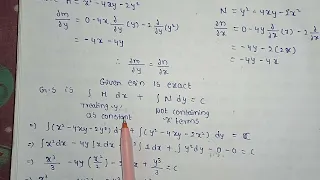 M = x² - 4xy - 2y²
N = y² - 4xy - 2x²
∂m/∂y = 0 - 4x ∂/∂y (y) - 2 ∂/∂y (y²)
∂n/∂x = 0 - 4y ∂/∂x
= -4x - 4y
= -4y - 2(2x)
= -4x - 4y
∴ ∂m/∂y = ∂n/∂x
Given eqn is exact
G.S is ∫ M dx + ∫ N dy = C
treating y as constant
Not containing x terms
⇒ ∫(x² - 4xy - 2y²) dx + ∫(y² - 4xy - 2x²) dy = C
⇒ ∫x² dx - 4y ∫x dx - 2y² ∫1 dx + ∫y² dy - 0 - 0 = C
⇒ x³/3 - 4y (x²/2) - 2 x + y³/3 = C